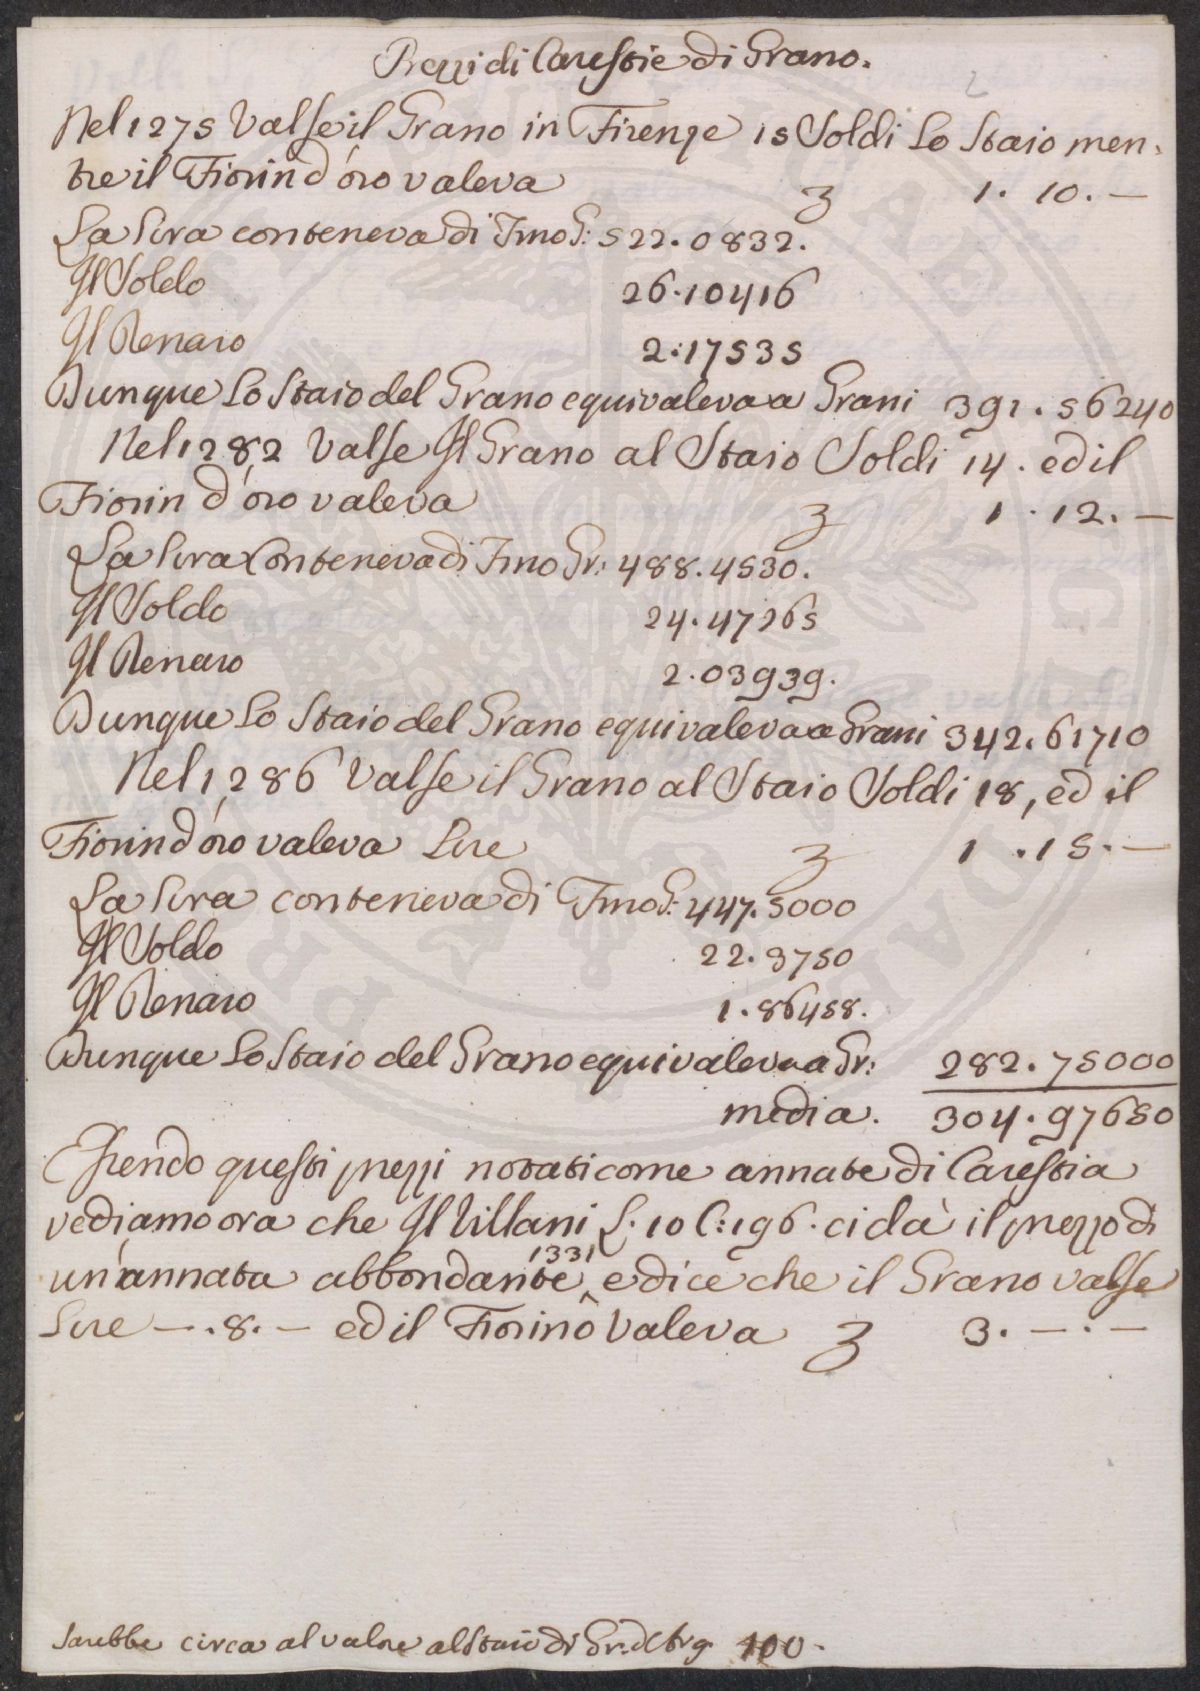 Prezzi di Carestie di Grano.
Nel 1275 Valse il Grano in Firenze 15 Soldi Lo Staio men-
tre il Fiorin d'óro valeva £ 1. 10. —
La Lira conteneva di Fino G: 522.0832.
Il Soldo 26.10416
Il Denaro 2.17535
Dunque Lo Staio del Grano equivaleva a Grani 391.56240
Nel 1282 Valse Il Grano al Staio Soldi 14. ed il
Fiorin d'oro valeva £ 1. 12. —
La Lira Conteneva di Fino Gr: 488.4530.
Il Soldo 24.47265
Il Denaro 2.03939.
Dunque Lo Staio del Grano equivaleva a Grani 342.61710
Nel 1286 Valse il Grano al Staio Soldi 18, ed il
Fiorin d'óro valeva Lire £ 1. 15. —
La Lira conteneva di Fino G: 447.5000
Il Soldo 22.3750
Il Denaro 1.86458.
Dunque Lo Staio del Grano equivaleva a Gr: 282.75000
media. 304.97650
Essendo questi prezzi notati come annate di Carestia
vediamo ora che Il Villani L. 10 C: 196. ci dà il prezzo di
un'annata abbondante ^1331 e dice che il Grano valse
Lire —. 8. — ed il Fiorino Valeva £ 3. — . —
Sarebbe circa al valore al Staio di Gr. 100.